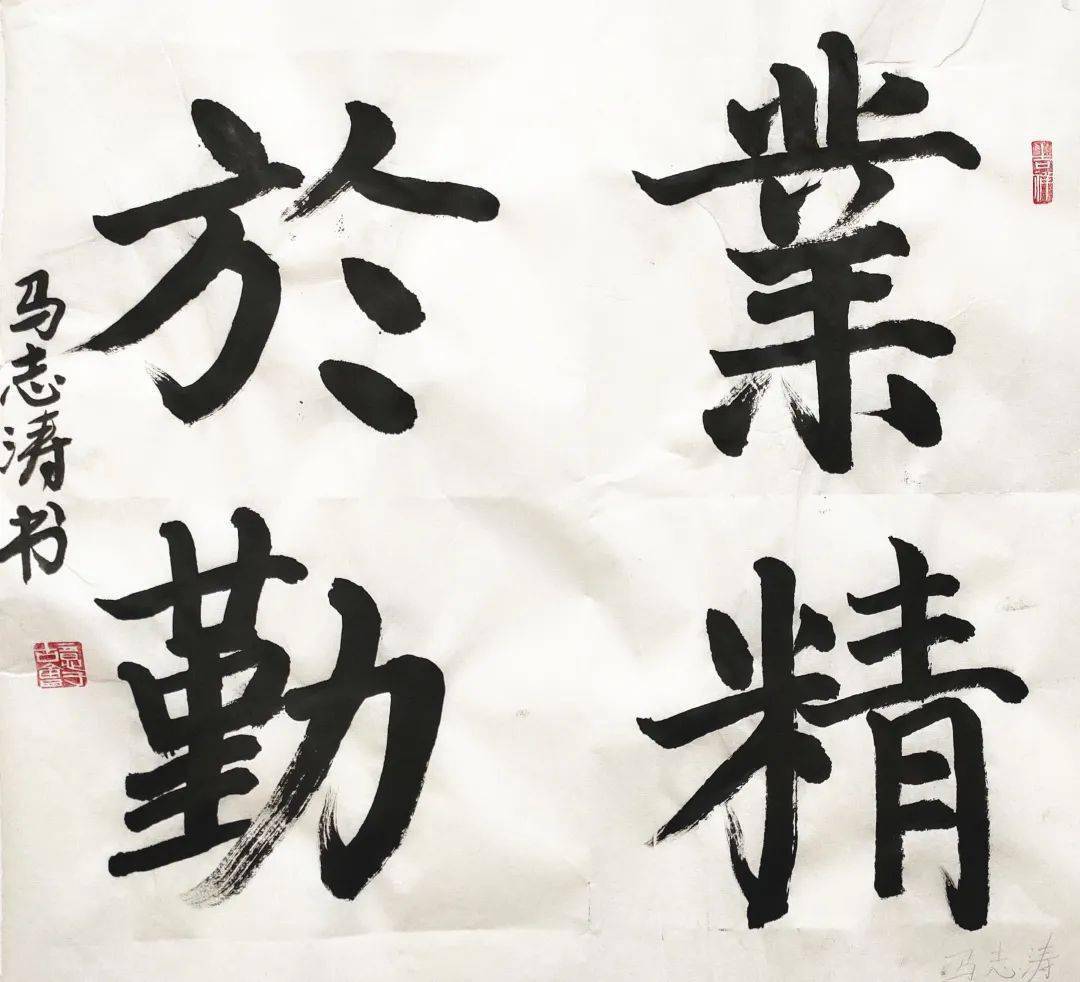 業精
於勤
马志涛书
马志涛